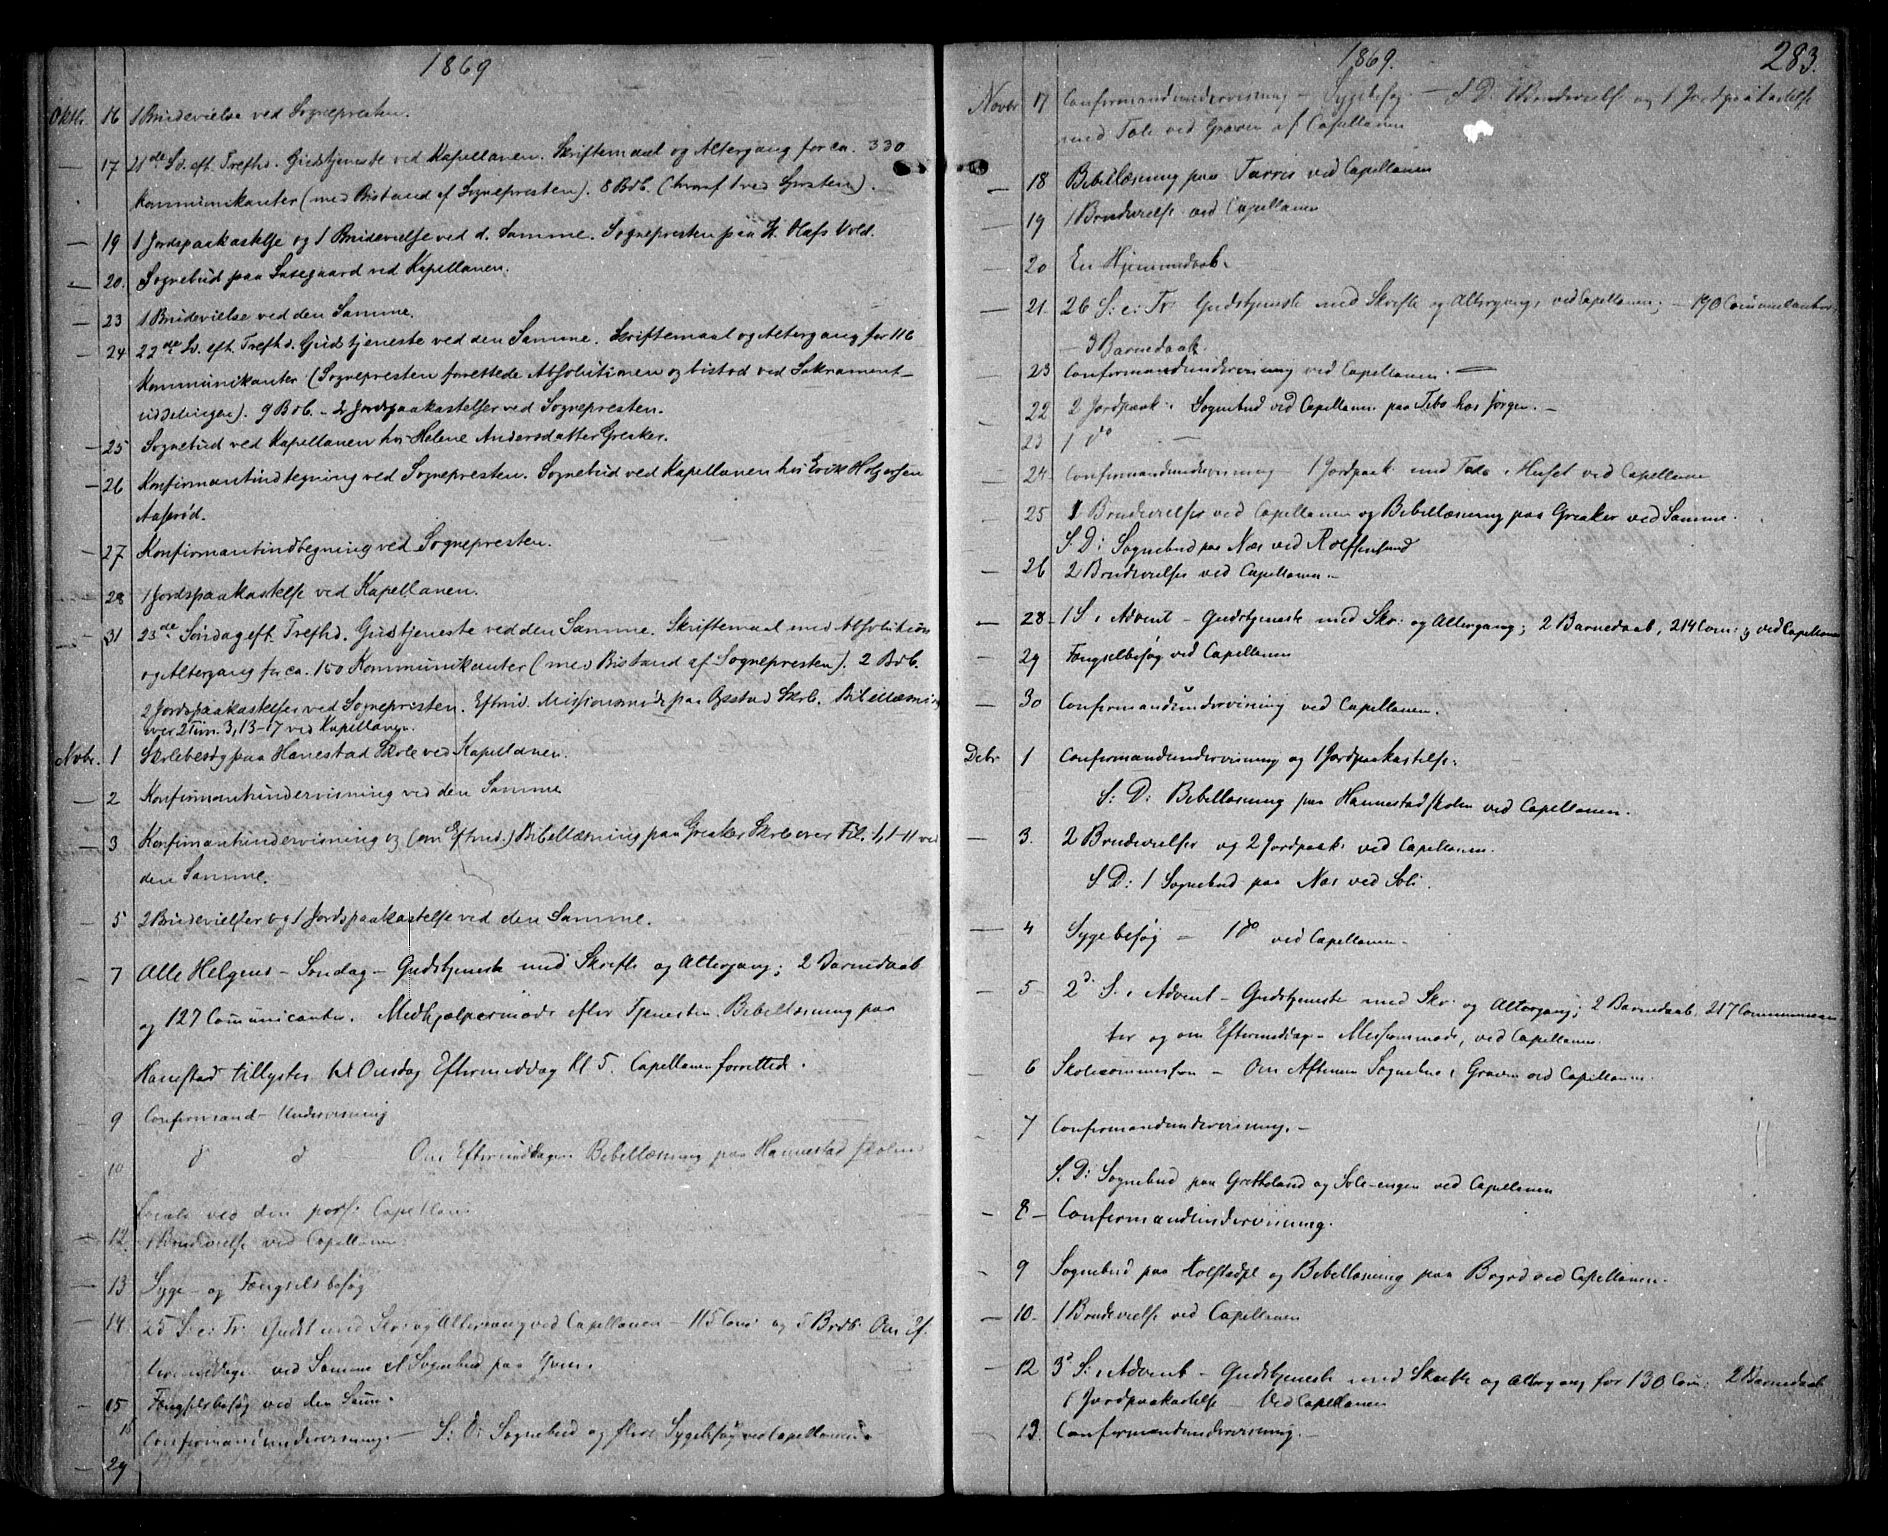 1869
Oktb. 16 1 Brudevielse ved Sognepresten.
— 17 21de S. eft. Trefhd. Gudstjeneste ved Kapellanen. Skriftemaal og Altergang for ca. 330
Kommunikanter (med Bistand af Sognepresten). 8 Brb. (hvoraf 1 ved).
— 19 1 Jordspaakastelse og 1 Brudevielse ved d. Samme. Sognepresten paa H. Olafs Vold.
— 20. Sognebud paa ved Kapellanen.
— 23 1 Brudevielse ved den Samme.
— 24 22de S. eft. Trefhd. Gudstjeneste ved den Samme. Skriftemaal og Altergang for 116
Kommunikanter (Sognepresten forettede Absolutionen og bistod ved Sakrament-
uddelingen). 9 Brb. - 2 Jordspaakastelser ved Sognepresten.
— 25 Sognebud ved Kapellanen hos Helene Andersdatter Greaker.
— 26 Konfirmantindtegning ved Sognepresten. Sognebud ved Kapellanen hos Erik Holgersen
Aasrød.
— 27 Konfirmantindtegning ved Sognepresten.
28 1 Jordspaakastelse ved Kapellanen.
— 31 23de Søndag eft. Trefhd. Gudstjeneste ved den Samme. Skriftemaal med Absolution
og Altergang for ca. 150 Kommunikanter (med Bistand af Sognepresten). 2 Brb.
2 Jordspaakastelser ved Sognepresten. Eftmd. Missionsmøde paa Opstad Skole. Bibellæsning
over 2 Tim. 3, 13-17 ved Kapellanen.
Novbr. 1 Skolebesøg paa Hanestad Skole ved Kapellanen.
— 2 Konfirmantundervisning ved den Samme
— 3 Konfirmantundervisning og (om Eftmd.) Bibellæsning paa Greaker Skole over Fil. 1, 1-11 ved
den Samme.
— 5 2 Brudevielser og 1 Jordspaakastelse ved den Samme.
— 7 Alle Helgens - Søndag - Gudstjeneste med Skrifte og Altergang; 2 Barnedaab
og 127 Comunicanter. Medhjælpermøde efter Tjenesten. Bibellæsning paa
Hanestad tillystes til Onsdag Eftermiddag Kl 5. Capellanen forrettede.
— 9 Confirmand - Undervisning
10 do do Om Eftermiddagen Bibellæsning paa Hannestad skolen
ved den pers: Capellan
— 12. 1 Brudevielse ved Capellanen.
— 13 Syge - og Fængselsbesøg
— 14 25 S: e: Tr: Gudst med Skr: og Altergang ved Capellanen - 115 Com: og 5 Brdb. Om Ef-
termiddagen ved Samme et Sognebud paa
— 15 Fængselsbesøg ved den Samm.
16 Confirmandundervisning. - S: D: Sognebud og flere Sygebesøg ved Capellanen.
— 29
1869. 283.
Novbr 17 Confirmandundervisning - Sygebesøg - S D: 1 Brudevielse og 1 Jordpaakastelse
med Tale ved Graven af Capellanen
— 18 Bibellæsning paa Tarris ved Capellanen
— 19 1 Brudevielse ved Capellanen
— 20 En Hjemmedaab.
— 21. 26 S: e: Tr: Gudstjeneste med Skrifte og Altergang, ved Capellanen; - 190 Communicanter,
— 3 Barnedaab.
— 23 Confirmandundervisning ved Capellanen. —
— 22 2 Jordpaak:. Sognebud ved Capellanen paa Tebo hos Jørgen. -
— 23 1 do —
— 24 Confirmandundervisning - 1 Jordpaak: med Tale i Huset ved Capellanen
— 25 1 Brudevielse ved Capellanen og Bibellæsning paa Greaker ved Samme.
S. D: Sognebud paa Næs ved
— 26 2 Brudevielser ved Capellanen. -
— 28 - 1 S. i Advent - Gudstjeneste med Skr: og Altergang; 2 Barnedaab, 214 Com: ; ved Capellanen
— 29 Fængselbesøg ved Capellanen
— 30 Confirmandundervisning ved Capellanen.
Debr 1 Confirmandundervisning og 1 Jordpaakastelse.
S: D: Bibellæsning paa Hannestadskolen ved Capellanen.
— 3. 2 Brudevielser og 2 Jordpaak: ved Capellanen.
S. D: 1 Sognebud paa Næs ved Soli.
— 4 Sygebesøg - 1 do ved Capellanen -
— 5 - 2d S. i Advent - Gudstjeneste med Skr: og Altergang; 2 Barnedaab, 217 Communican
ter og om Eftermiddag - Missionsmøde, ved Capellanen.
— 6 Skolecommission - Om Aftenen Sognebud i Graven ved Capellanen.
— 7 Confirmandundervisning. -
S. D: Sognebud paa Gretteland og Soli-engen ved Capellanen
— 8 - Confirmandundervisning.
— 9 Sognebud paa Holstadpl og Bibellæsning paa ved Capellanen.
— 10. 1 Brudevielse ved Capellanen
— 12 3d S. i Advent - Gudstjeneste med Skrifte og Altergang for 130 Com: 2 Barnedaab
1 Jordpaakastelse - Ved Capellanen
— 13. Confirmandundervisning. -